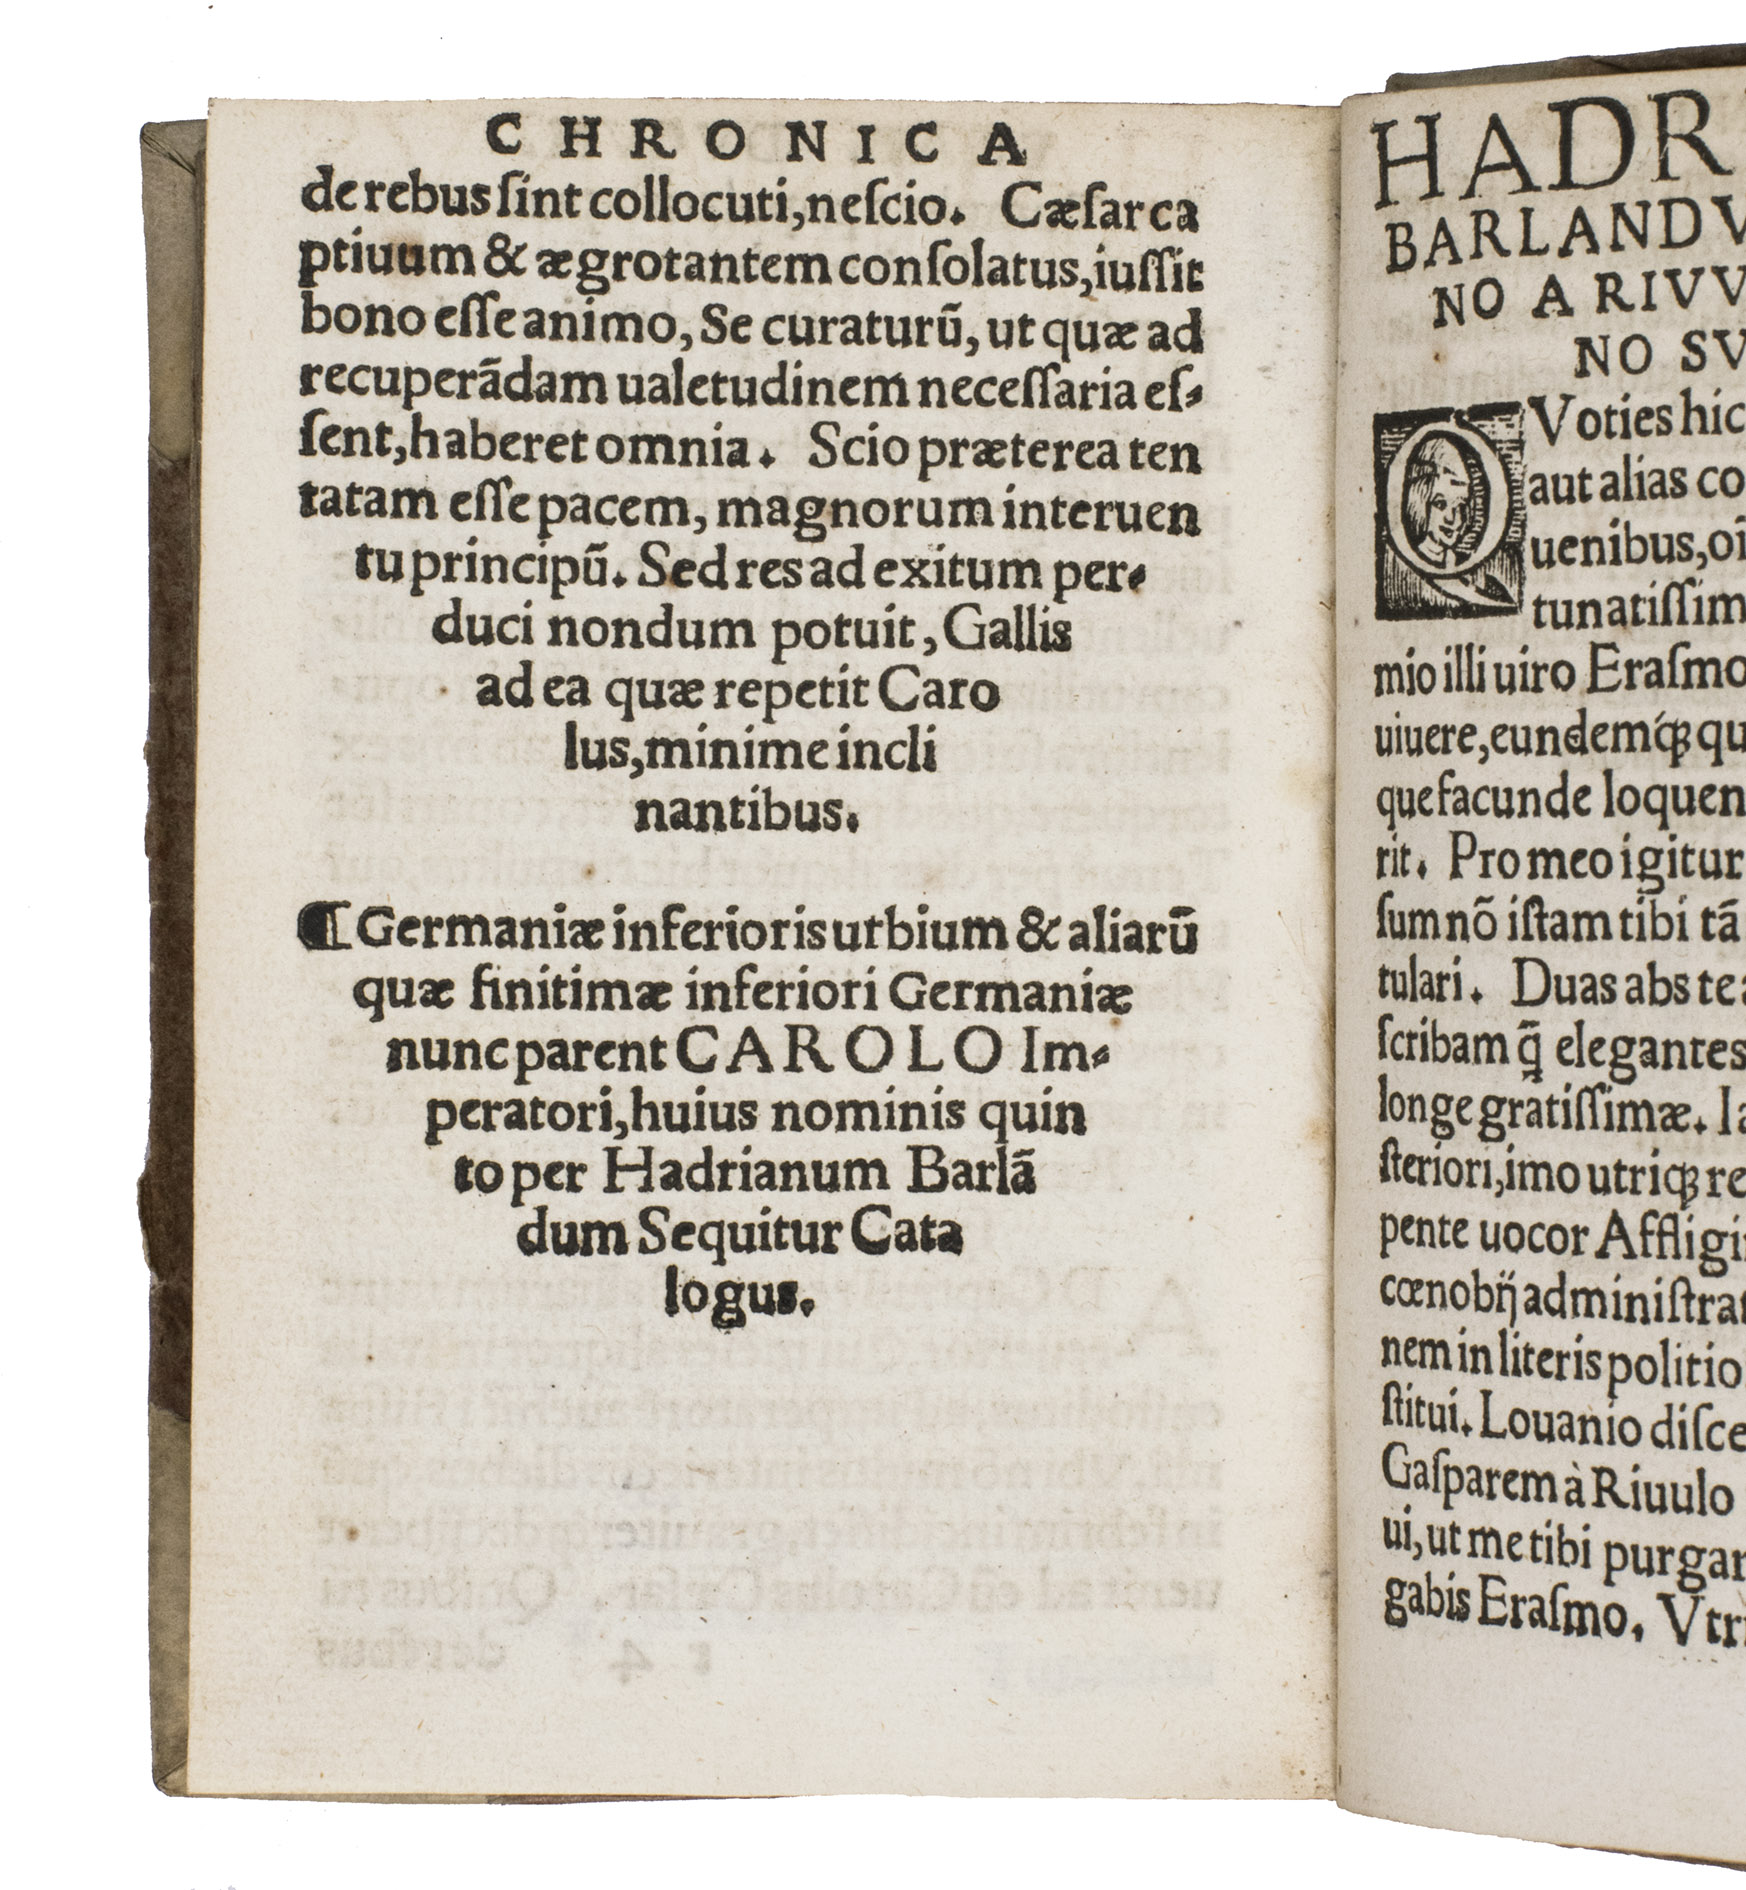 CHRONICA
de rebus ſint collocuti, neſcio. Cæſar ca
ptiuum & ægrotantem conſolatus, iuſſit
bono eſſe animo, Se curaturũ, ut quæ ad
recuperãdam ualetudinem neceſſaria eſ-
ſent, haberet omnia. Scio præterea ten
tatam eſſe pacem, magnorum interuen
tu principũ. Sed res ad exitum per-
duci nondum potuit, Gallis
ad ea quæ repetit Caro
lus, minime incli
nantibus.
¶ Germaniæ inferioris urbium & aliarũ
quæ finitimæ inferiori Germaniæ
nunc parent CAROLO Im-
peratori, huius nominis quin
to per Hadrianum Barlã
dum Sequitur Cata
logus.
HADR
BARLANDV
NO A RIVV
NO SV
QVoties hic
aut alias co
uenibus, oĩ
tunatiſſim
mio illi uiro Eraſmo
uiuere, eundemq́ꝫ qu
que facunde loquen
rit. Pro meo igitur
ſum nõ iſtam tibi tã
tulari. Duas abs te a
ſcribam q̃ elegantes
longe gratiſſimæ. Ia
ſteriori, imo utriqꝫ re
pente uocor Affligi
cœnobij adminiſtrat
nem in literis politio
ſtitui. Louanio diſce
Gaſparem à Riuulo
ui, ut me tibi purgar
gabis Eraſmo. Vtri